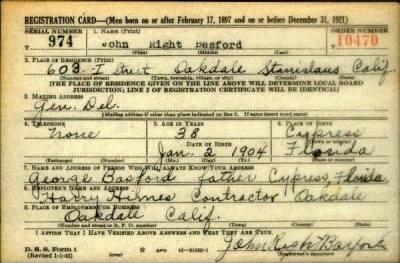 REGISTRATION CARD—(Men born on or after February 17, 1897 and on or before December 31, 1921)
SERIAL NUMBER 1. NAME (Print) ORDER NUMBER
974 John Right Basford 10470
(First) (Middle) (Last)
2. PLACE OF RESIDENCE
603 F Street Oakdale Stanislaus Calif.
(Number and street) (Town, township, village, or city) (County) (State)
[THE PLACE OF RESIDENCE GIVEN ON THE LINE ABOVE WILL DETERMINE LOCAL BOARD
JURISDICTION; LINE 2 OF REGISTRATION CERTIFICATE WILL BE IDENTICAL]
3. MAILING ADDRESS
Gen. Del.
[Mailing address if other than place indicated on line 2. If same insert word same]
4. TELEPHONE 5. AGE IN YEARS 6. PLACE OF BIRTH
None 38 Cypress
DATE OF BIRTH (Town or county)
Jan. 2 1904 Florida
(Exchange) (Number) (Mo.) (Day) (Yr.) (State or country)
7. NAME AND ADDRESS OF PERSON WHO WILL ALWAYS KNOW YOUR ADDRESS
George Basford Father Cypress, Florida
8. EMPLOYER'S NAME AND ADDRESS
Harry Contractor Oakdale
9. PLACE OF EMPLOYMENT OR BUSINESS
Oakdale Calif.
(Number and street or R. F. D. number) (Town) (County) (State)
I AFFIRM THAT I HAVE VERIFIED ABOVE ANSWERS AND THAT THEY ARE TRUE.
D. S. S. Form 1
(Revised 1-1-42) (over) John Right Basford